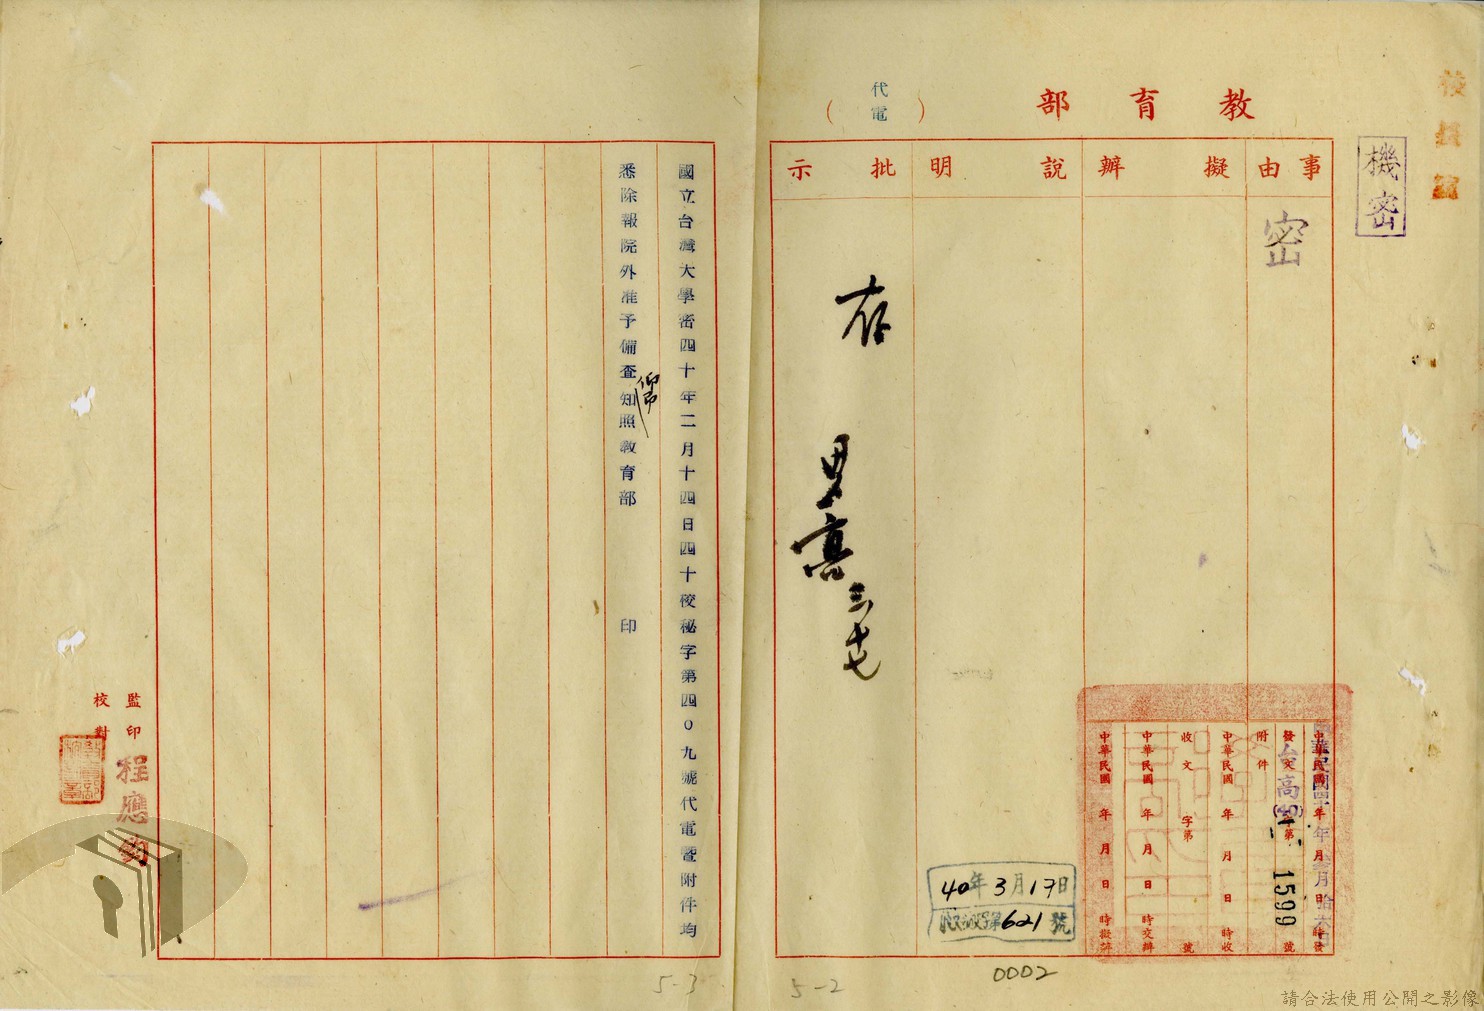 校長室
機密
教育部
（代電）
事由
擬辦
說明
批示
密
存
中華民國四十年三月拾六日
時發
發文
台高(40)字第1599號
附件
中華民國 年 月 日 時收
收文 字第 號
中華民國 年 月 日 時交辦
中華民國 年 月 日 時擬辦
40年3月17日
字第621號
0002
5-2
國立台灣大學密四十年二月十四日四十校秘字第四0九號代電暨附件均
悉除報院外准予備查仰知照教育部 印
監印
校對
程應鈞
5-3
請合法使用公開之影像